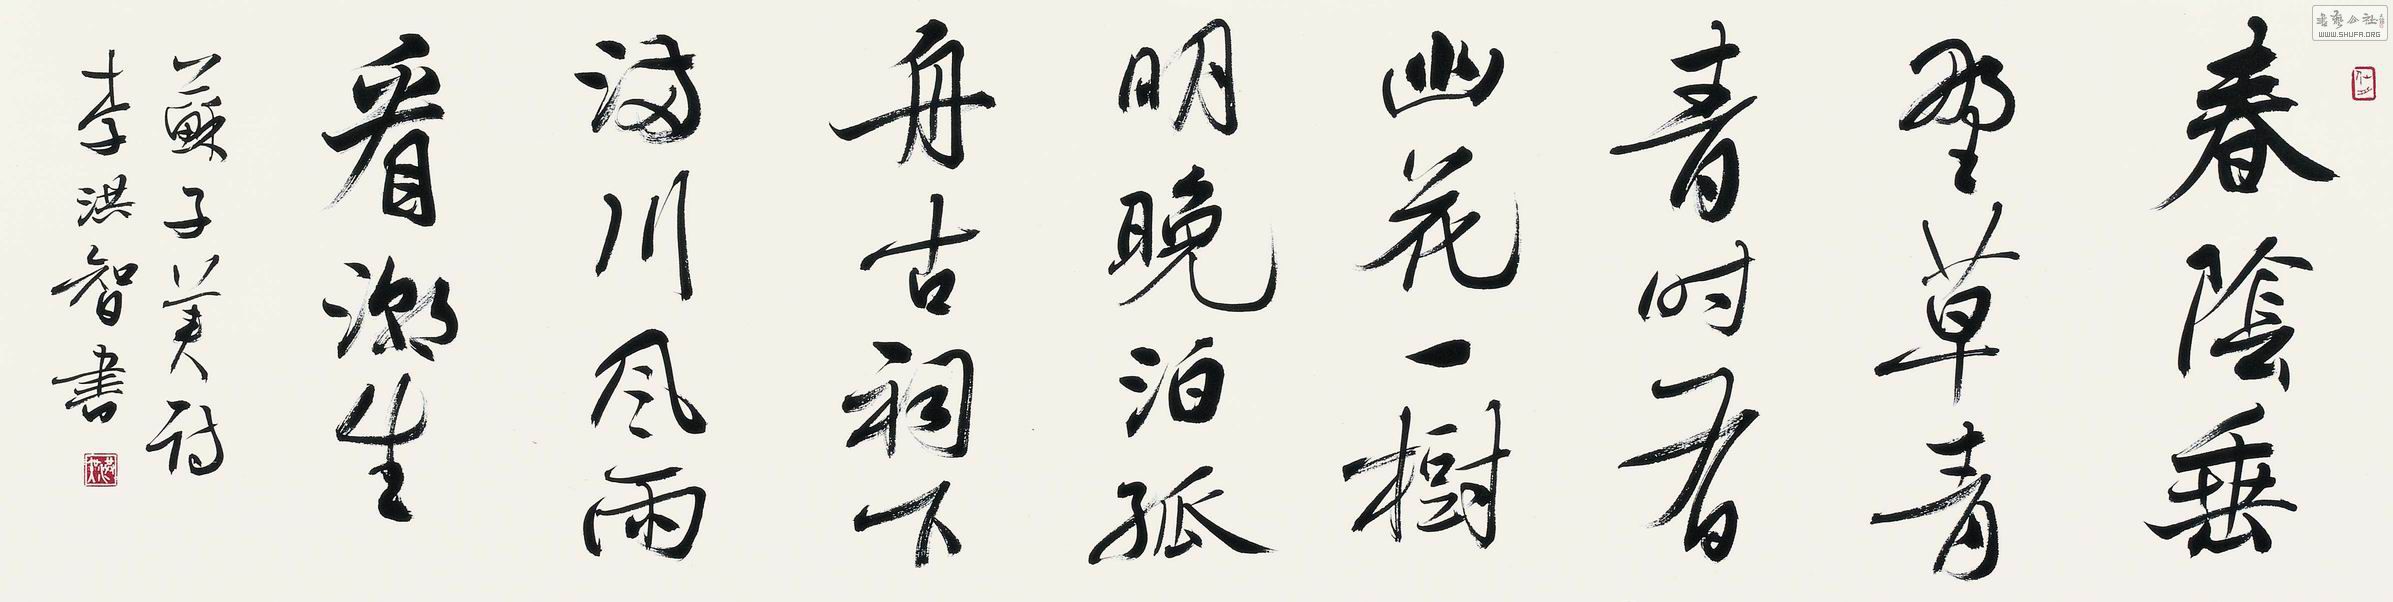 春陰垂
野草青
青时有
幽花一樹
明晚泊孤
舟古祠下
满川风雨
看潮生
蘇子美诗
李洪智書
書藝公社
WWW.SHUFA.ORG